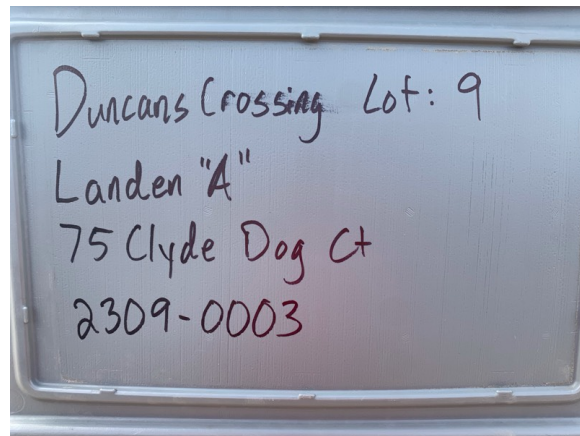 Duncans Crossing Lot: 9
Landen "A"
75 Clyde Dog Ct
2309-0003